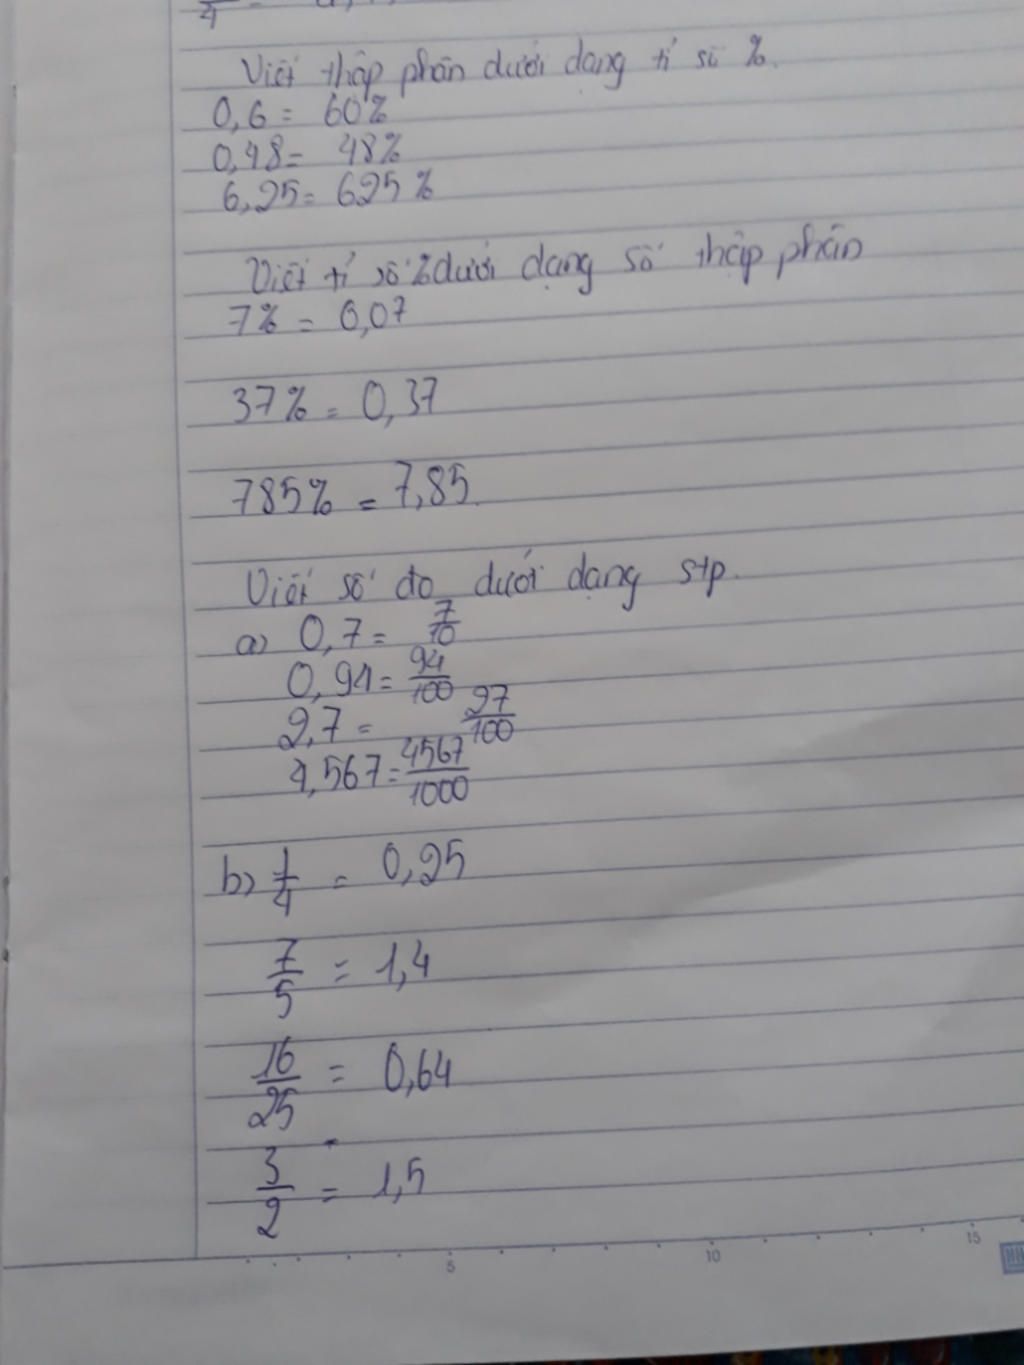 Viết thập phân dưới dạng tỉ số %.
0,6 = 60%
0,48 = 48%
6,25 = 625%
Viết tỉ số % dưới dạng số thập phân
7% = 0,07
37% = 0,37
785% = 7,85.
Viết số đo dưới dạng stp.
a) 0,7 = 7/10
0,94 = 94/100
2,7 = 27/100
4,567 = 4567/1000
b) 1/4 = 0,25
7/5 = 1,4
16/25 = 0,64
3/2 = 1,5
5 10 15